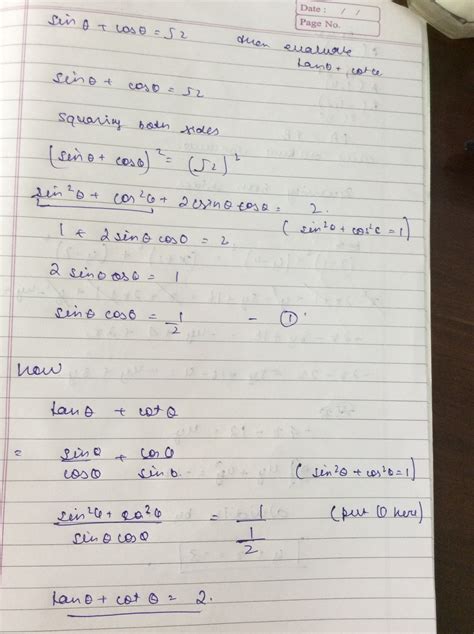 Date : / /
Page No.
sinθ + cosθ = √2 then evaluate
tanθ + cotθ
sinθ + cosθ = √2
Squaring both sides
(sinθ + cosθ)² = (√2)²
sin²θ + cos²θ + 2 sinθ cosθ = 2.
1 + 2 sinθ cosθ = 2. (sin²θ + cos²θ = 1)
2 sinθ cosθ = 1
sinθ cosθ = 1/2 - ①
Now
tanθ + cotθ
= sinθ/cosθ + cosθ/sinθ (sin²θ + cos²θ = 1)
sin²θ + cos²θ / sinθ cosθ = 1 / 1/2 (put ① here)
tanθ + cotθ = 2.